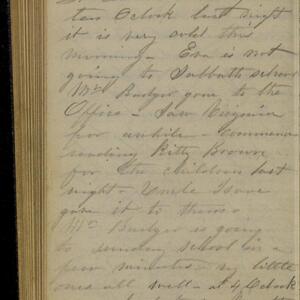 ten Oclock last night
it is very cold this
morning - Eva is not
going to Sabbath school
Mr Badger gone to the
Office - Saw Virginia
for awhile - Commenced
reading Kitty Brown
for the children last
night - Uncle Isaac
gave it to them -
Mr Badger is going
to sunday school in a
few minutes - my little
ones all well - at 4 Oclock